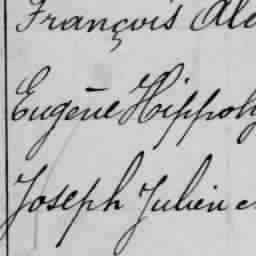 François Ale
Eugène Hippoly
Joseph Julien